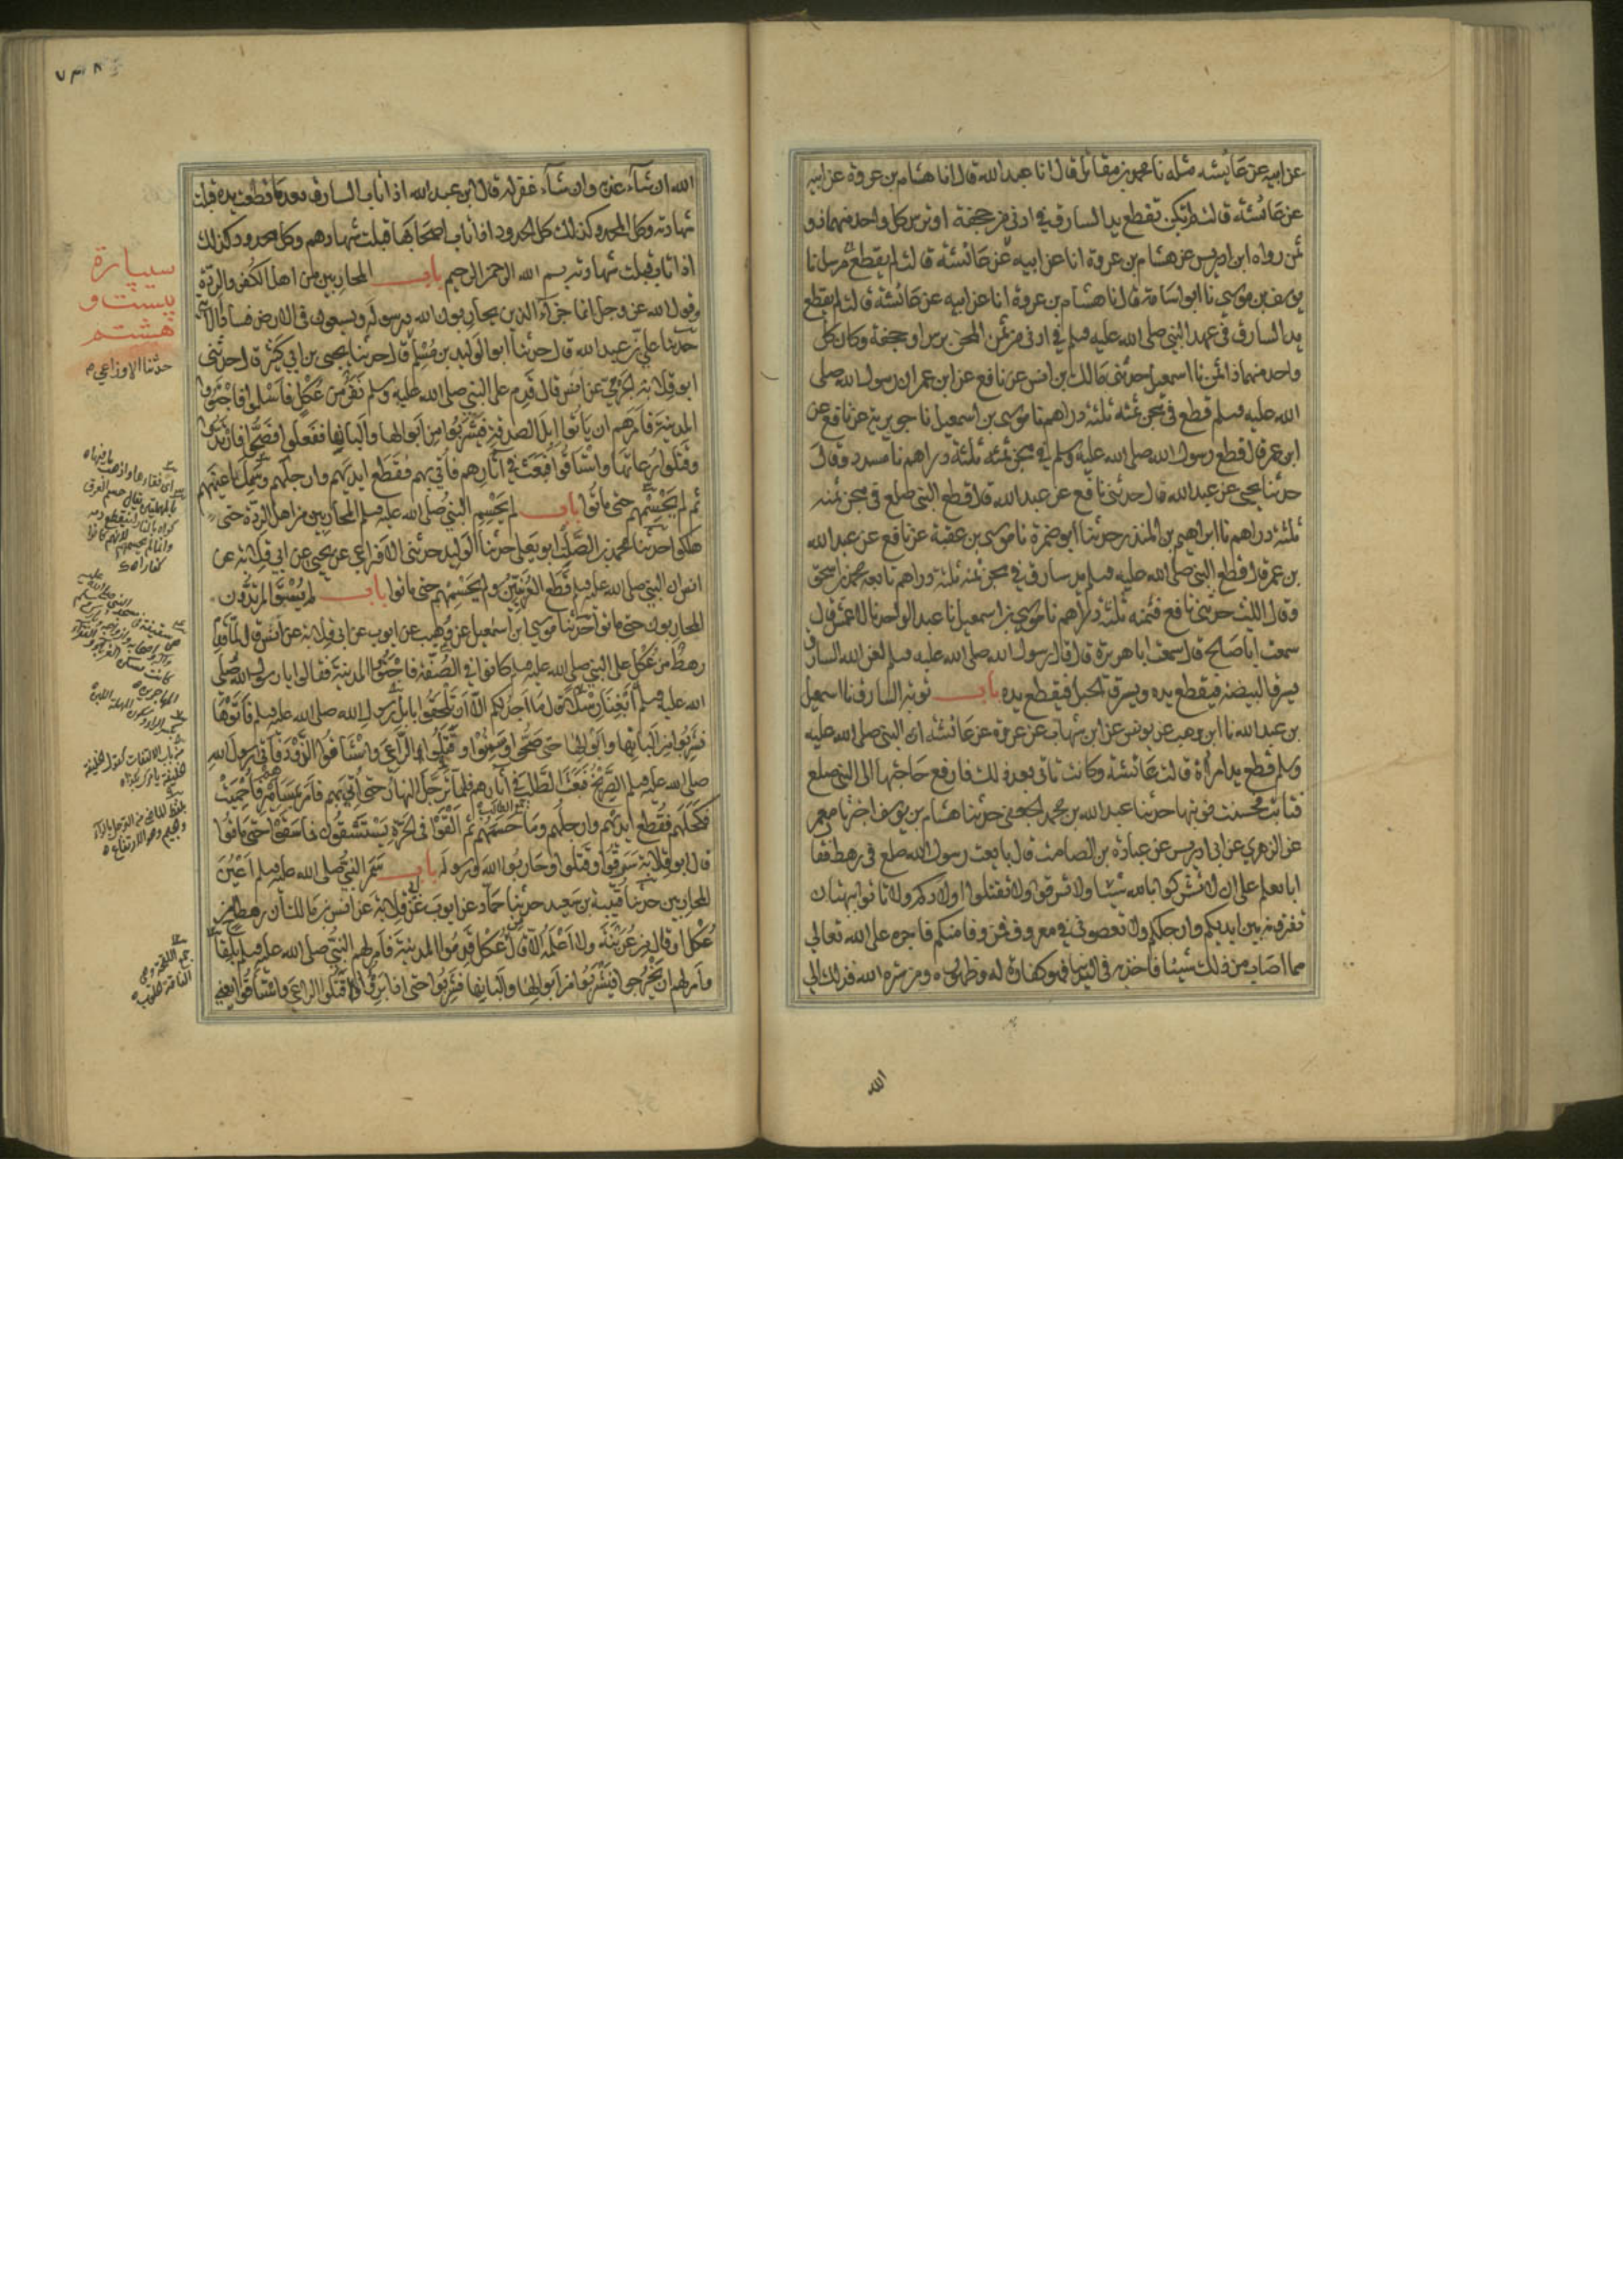 عن ابيه عن عائشه مثله نا محمد بن مقاتل قال انا عبد الله قال انا هشام بن عروة عن ابيه
عن عائشة قالت لم تكن تقطع يد السارق في ادنى من حجفة او ترس كل واحد منهما ذو
ثمن رواه ابن ادريس عن هشام بن عروة انا عن ابيه عن عائشة قالت لم يقطع مرسل نا
يوسف بن موسى نا ابو اسامة قال نا هشام بن عروة انا عن ابيه عن عائشة قالت لم يقطع
يد السارق في عهد النبي صلى الله عليه وسلم في ادنى من ثمن المجن ترس او حجفة وكان كل
واحد منهما ذا ثمن نا اسمعيل حدثنى مالك بن انس عن نافع عن ابن عمر ان رسول الله صلى
الله عليه وسلم قطع في مجن ثمنه ثلثة دراهم نا موسى بن اسمعيل نا جويرية عن نافع عن
ابن عمر قال قطع رسول الله صلى الله عليه وسلم في مجن ثمنه ثلثة دراهم نا مسدد وقال
حدثنا يحيى عن عبيد الله قال حدثني نافع عن عبد الله قال قطع النبي صلعم في مجن ثمنه
ثلثة دراهم نا ابراهيم بن المنذر حدثنا ابو ضمرة نا موسى بن عقبة عن نافع عن عبد الله
بن عمر قال قطع النبي صلى الله عليه وسلم يد سارق في مجن ثمنه ثلثة دراهم تابعه محمد بن اسحق
وقال الليث حدثني نافع قيمته ثلثة دراهم نا موسى بن اسمعيل نا عبد الواحد نا الاعمش قال
سمعت ابا صالح قال سمعت ابا هريرة قال قال رسول الله صلى الله عليه وسلم لعن الله السارق
يسرق البيضة فيقطع يده ويسرق الحبل فيقطع يده باب توبة السارق نا اسمعيل
بن عبد الله نا ابن وهب عن يونس عن ابن شهاب عن عروة عن عائشة ان النبي صلى الله عليه
وسلم قطع يد امراة قالت عائشة وكانت تاتي بعد ذلك فارفع حاجتها الى النبي صلعم
فتابت فحسنت توبتها حدثنا عبد الله بن محمد الجعفي حدثنا هشام بن يوسف اخبرنا معمر
عن الزهري عن ابي ادريس عن عبادة بن الصامت قال بايعت رسول الله صلعم في رهط فقا
ابايعكم على ان لا تشركوا بالله شيئا ولا تسرقوا ولا تقتلوا اولادكم ولا تاتوا ببهتان
تفترونه بين ايديكم وارجلكم ولا تعصوني في معروف فمن وفا منكم فاجره على الله تعالى
مما اصاب من ذلك شيئا فاخذ به في الدنيا فهو كفارة له وطهوره ومن ستره الله فذلك الى
الله
٧٣٨
الله ان شاء عذبه وان شاء غفر له قال ابن عبد الله اذا تاب السارق بعد ما قطعت يده قبلت
شهادته وكل المحدود كذلك كل الحدود اذا تاب اصحابها قبلت شهادتهم وكل محدود كذلك
اذا تاب قبلت شهادته بسم الله الرحمن الرحيم باب المحاربين من اهل الكفر والردة
وقول الله عز وجل انما جزآء الذين يحاربون الله ورسوله ويسعون في الارض فسادا الآية
حدثنا علي بن عبد الله قال حدثنا ابو الوليد بن مسلم قال حدثنا يحيى بن ابي كثير قال حدثني
ابو قلابة الجرمي عن انس قال قدم على النبي صلى الله عليه وسلم نفر من عكل فاسلموا فاجتووا
المدينة فامرهم ان ياتوا ابل الصدقة فيشربوا من ابوالها والبانها ففعلوا فصحوا فارتدوا
وقتلوا رعاتها واستاقوا فبعث في آثارهم فاتي بهم فقطع ايديهم وارجلهم وسمل اعينهم
ثم لم يحسمهم حتى ماتوا باب لم يحسم النبي صلى الله عليه وسلم المحاربين من اهل الردة حتى
هلكوا حدثنا محمد بن الصلت ابو يعلى حدثنا الوليد حدثني الاوزاعي عن يحيى عن ابي قلابة عن
انس ان النبي صلى الله عليه وسلم قطع العرنيين ولم يحسمهم حتى ماتوا باب لم يسق المرتدون
المحاربون حتى ماتوا حدثنا موسى بن اسمعيل عن وهيب عن ايوب عن ابي قلابة عن انس قال قدم
رهط من عكل على النبي صلى الله عليه وسلم كانوا في الصفة فاجتووا المدينة فقالوا يا رسول الله صلى
الله عليه وسلم ابغنا رسلا قال ما اجد لكم الا ان تلحقوا بابل رسول الله صلى الله عليه وسلم فاتوها
فشربوا من البانها وابوالها حتى صحوا وسمنوا وقتلوا الراعي واستاقوا الذود فاتى رسول الله
صلى الله عليه وسلم الصريخ فبعث الطلب في آثارهم فما ترجل النهار حتى اتي بهم فامر بمسامير فاحميت
فكحلهم فقطع ايديهم وارجلهم وما حسمهم ثم القوا في الحرة يستسقون فما سقوا حتى ماتوا
قال ابو قلابة سرقوا وقتلوا وحاربوا الله ورسوله باب سمر النبي صلى الله عليه وسلم اعين
المحاربين حدثنا قتيبة بن سعيد حدثنا حماد عن ايوب عن ابي قلابة عن انس بن مالك ان رهطا من
عكل او قال من عرينة ولا اعلمه الا قال من عكل قدموا المدينة فامر لهم النبي صلى الله عليه وسلم بلقاح
وامرهم ان يخرجوا فيشربوا من ابوالها والبانها فشربوا حتى اذا برئوا قتلوا الراعي واستاقوا النعم
سيپارة
بيست و
هشتم
حدثنا الاوزاعي